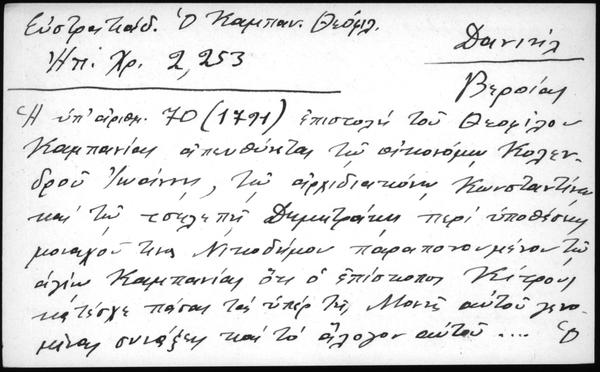 Εὐστρατιάδ. Ὁ Καμπαν. Θεόφιλ.
Ἠπ. Χρ. 2, 253
Δανιήλ
Βεροίας
Ἡ ὑπ' ἀριθμ. 70 (1791) ἐπιστολὴ τοῦ Θεοφίλου
Καμπανίας ἀπευθύνεται τῷ οἰκονόμῳ Κολεν-
δροῦ Ἰωάννῃ, τῷ ἀρχιδιακόνῳ Κωνσταντίνῳ
καὶ τῷ τσελεπῆ Δημητράκῃ περὶ ὑποθέσεως
μοναχοῦ τινος Νικοδήμου παραπονουμένου τῷ
ἁγίῳ Καμπανίας ὅτι ὁ ἐπίσκοπος Κίτρους
κατέσχε πάσας τὰς ὑπὲρ τῆς Μονῆς αὐτοῦ γενο-
μένας συνάξεις καὶ τὸ ἄλογον αὐτοῦ .... Ὁ